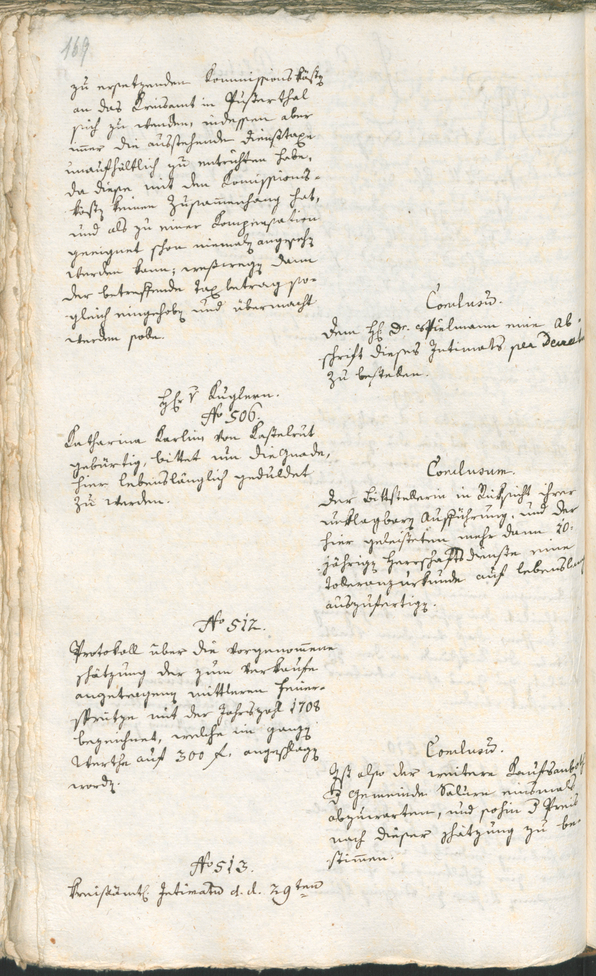 169.
zu ersetzenden Kommissionskösten
an das Kreisamt in Pußerthal
sich zu wenden, indessen aber
immer die ausstehende Diensttaxe
unaufhältlich zu entrichten habe,
da diese mit den Komissions-
kösten keinen Zusammenhang hat,
und als zu einer Kompensation
geeignet schon niemals angesehen
werden kann; weßwegen dann
der betreffende Taxbetrag so-
gleich eingehoben und übermacht
werden solle.
Conclusum.
Dem H. Dr. Spielmann eine Ab-
schrift dieses Intimats per Decretum
zu bestellen.
H. v Kuglern.
No 506.
Katharina Karlin von Kastelrut
gebürtig, bittet um die Gnade,
hier lebenslänglich geduldet
zu werden.
Conclusum.
Der Bittstellerin in Rücksicht ihrer
unklagbaren Aufführung, und der
hier geleisteten mehr dann 20-
jährigen Herrschaftsdienste eine
Toleranzurkunde auf lebenslang
auszufertigen.
No 512.
Protokoll über die vorgenommene
Schätzung der zum Verkaufe
angetragenen mittleren Feuer-
spritze mit der Jahrszahl 1708
bezeichnet, welche im ganzen
Werthe auf 300 f. angeschlagen
worden.
Conclusum.
Ist also der weitere Kaufsanboth
der Gemeinde Salurn einsmals
abzuwarten, und sohin der Preis
nach dieser Schätzung zu be-
stimmen.
No 513.
Kreisämtl. Intimatum d. d. 29ten